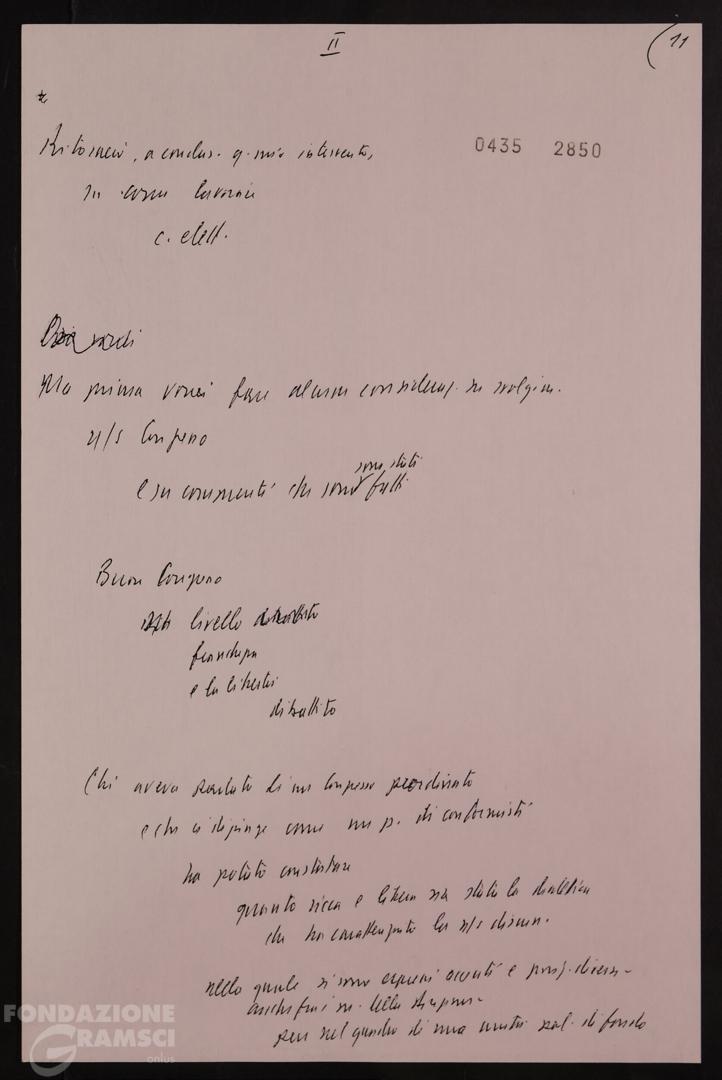 II
11
0435 2850
Ritornerò, a conclus. q. mio intervento,
su come lavorare
c. elett.
Ma prima vorrei fare alcune consideraz. su svolgim.
n/s Congresso
e su commenti che sono stati fatti
Buon Congresso
livello dibattito
franchezza
e la libertà
dibattito
Chi aveva parlato di un Congresso preordinato
e che ci dipinge come un p. di conformisti
ha potuto constatare
quanto ricca e libera sia stata la dialettica
che ha caratterizzato la n/s discuss.
nella quale si sono espressi accenti e posiz. diverse
pur nel quadro di una unità sol. di fondo
FONDAZIONE
GRAMSCI
onlus